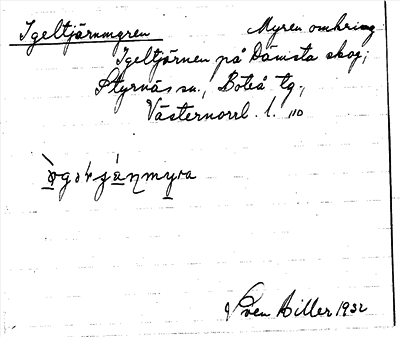 Igeltjärnmyren Myren omkring
Igeltjärnen på Dämsta skog,
Styrnäs sn., Boteå tg.,
Västernorrl. l.
Sven Hiller 1932